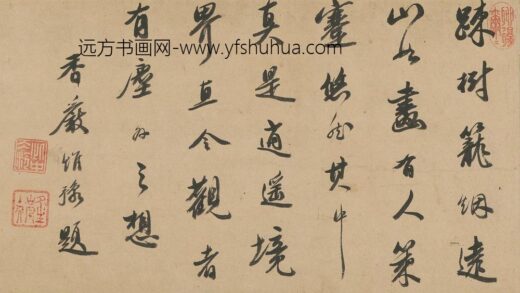 疎樹籠烟遠
山如畫有人策
蹇悠然其中
真是逍遥境
界直令觀者
有塵外之想
香巖 題
远方书画网--www.yfshuhua.com